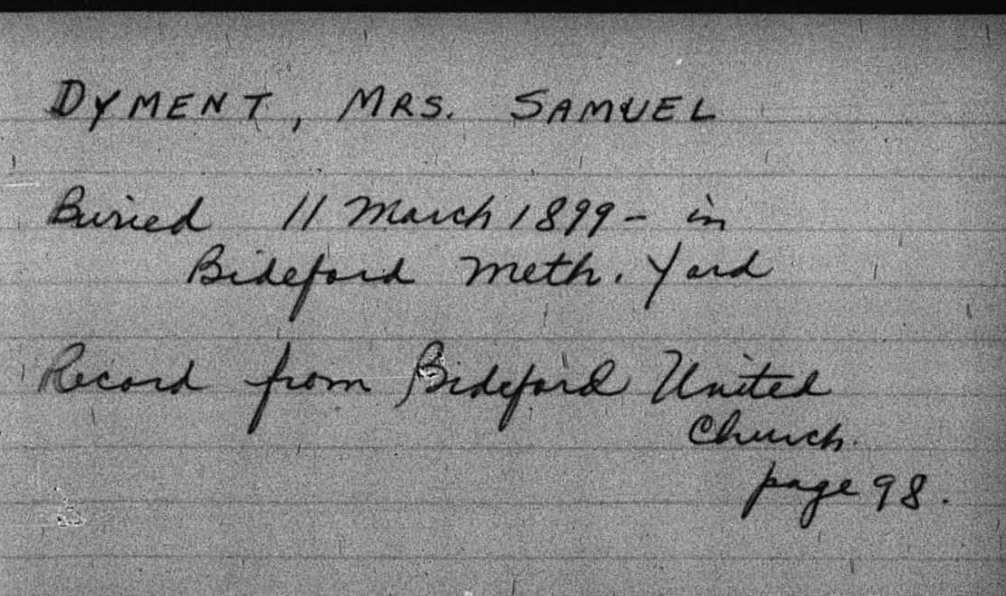 DYMENT, MRS. SAMUEL
Buried 11 March 1899 - in
Bideford Meth. Yard
Record from Bideford United
Church
page 98.